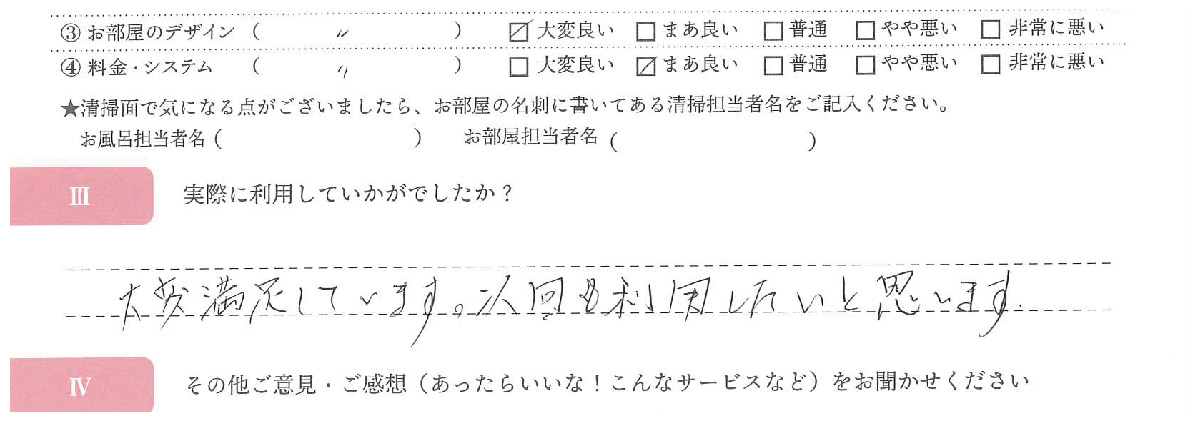 ③ お部屋のデザイン （ 〃 ） ☑ 大変良い □ まあ良い □ 普通 □ やや悪い □ 非常に悪い
④ 料金・システム （ 〃 ） □ 大変良い ☑ まあ良い □ 普通 □ やや悪い □ 非常に悪い
★清掃面で気になる点がございましたら、お部屋の名刺に書いてある清掃担当者名をご記入ください。
お風呂担当者名（ ） お部屋担当者名（ ）
Ⅲ 実際に利用していかがでしたか？
大変満足しています。次回も利用したいと思います.
Ⅳ その他ご意見・ご感想（あったらいいな！こんなサービスなど）をお聞かせください